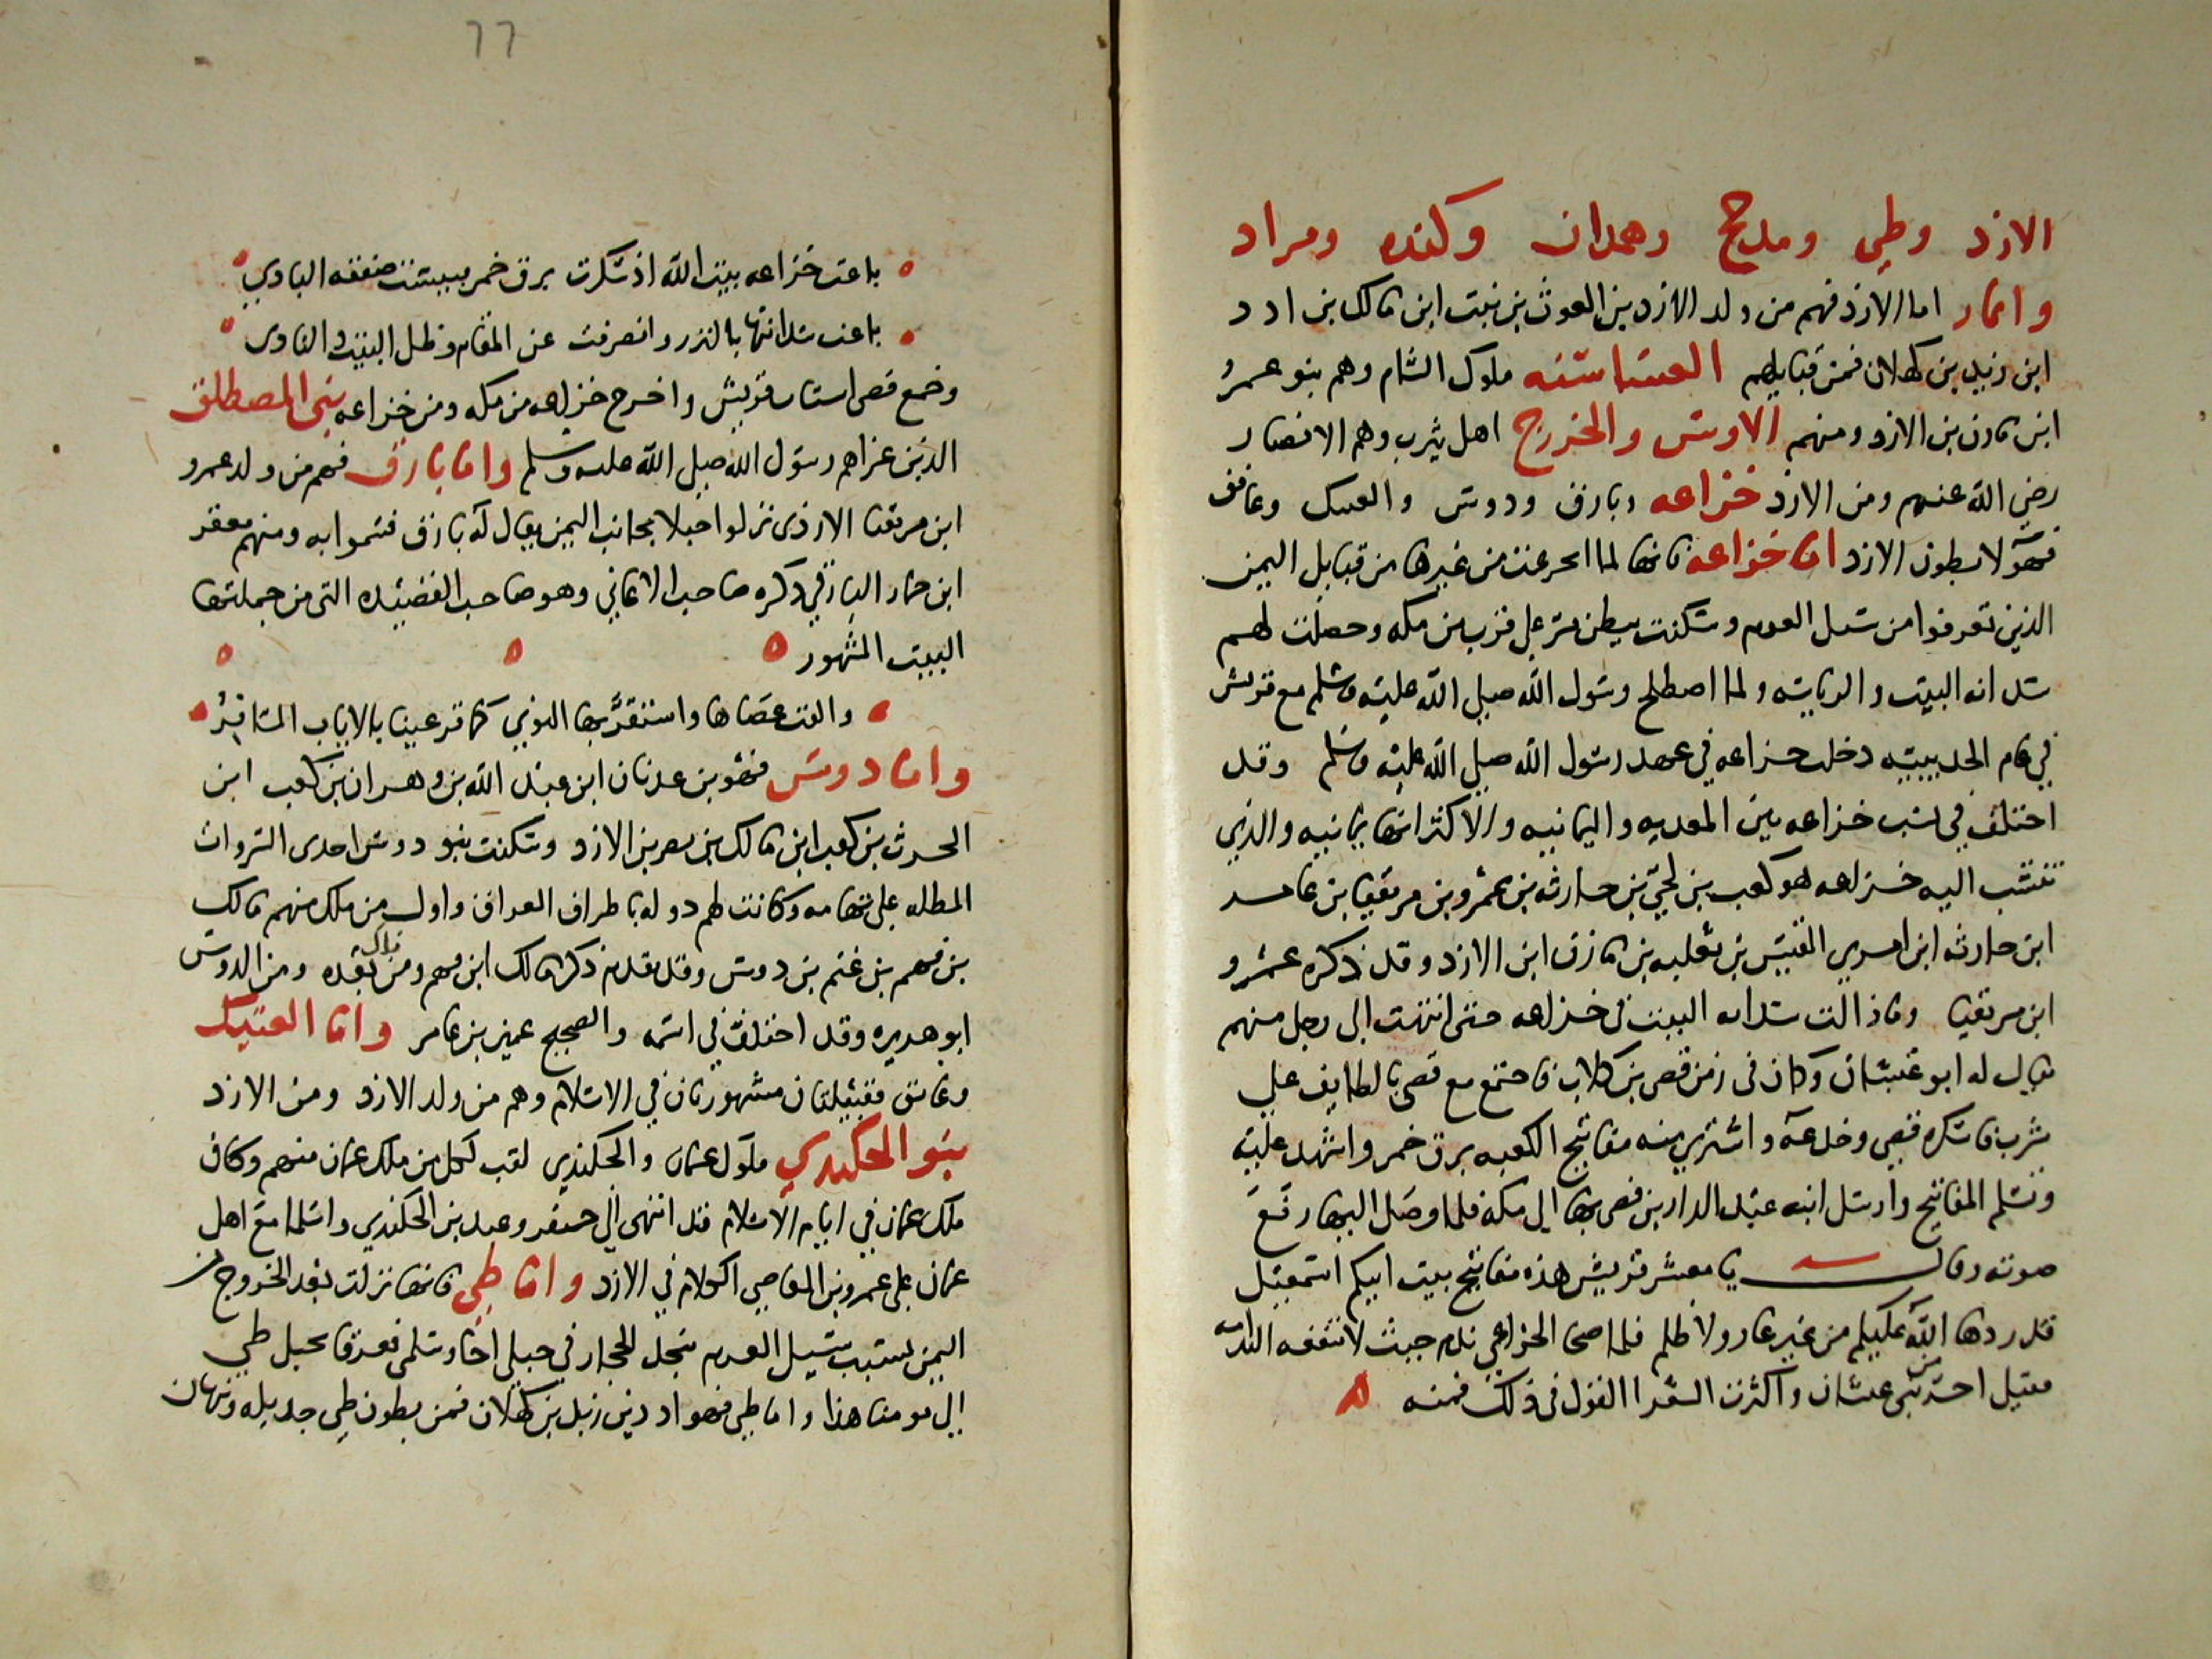 الازد وطي ومدحج وهمدان وكنده ومراد
وانمار اما الازد فهم من ولد الازد بن الغوث بن نبت ابن مالك بن ادد
ابن زيد بن كهلان فمن قبايلهم الغساسنه ملوك الشام وهم بنو عمرو
ابن مازن بن الازد ومنهم الاوس والخزرج اهل يثرب وهم الانصار
رضي الله عنهم ومن الازد خزاعه وبارق ودوس والعتيك وغافق
فهؤلا بطون الازد اما خزاعه فانها لما انخرعت من غيرها من قبايل اليمن
الذين تفرقوا من سيل العرم وسكنت ببطن مر على قرب من مكه وحصلت لهم
سدانه البيت والرياسه ولما اصطلح رسول الله صلى الله عليه وسلم مع قريش
في عام الحديبيه دخلت خزاعه في عهد رسول الله صلى الله عليه وسلم وقد
اختلف في نسب خزاعه بين المعديه واليمانيه والاكثر انها يمانيه والذي
تنتسب اليه خزاعه هو كعب بن لحي بن حارثه بن عمرو بن مزيقيا بن عامر
ابن حارثه ابن امري القيس بن ثعلبه بن مازن ابن الازد وقد ذكره عمرو
ابن مزيقيا وما زالت سدانه البيت في خزاعه حتى انتهت الى رجل منهم
يقال له ابو غبشان وكان في زمن قصى بن كلاب فاجتمع مع قصى بالطايف على
شرب فاسكره قصى وخدعه واشترى منه مفاتيح الكعبه بزق خمر واشهد عليه
وتسلم المفاتيح وارسل ابنه عبد الدار بن قصى بها الى مكه فلما وصل اليها رفع
صوته وقال يا معشر قريش هذه مفاتيح بيت ابيكم اسمعيل
قد ردها الله عليكم من غير عار ولا ظلم فلما صحا الخزاعي ندم حيث لا تنفعه الندامه
فقيل اخسر من ابى غبشان واكثرت الشعرا القول في ذلك فمنه
٦٦
باعت خزاعه بيت الله اذ سكرت بزق خمر فبيست صفقه البادي
باعت سدانتها بالنزر وانصرفت عن المقام وظل البيت والنادى
وجمع قصى اشتات قريش واخرج خزاعه من مكه ومن خزاعه بنى المصطلق
الذين غزاهم رسول الله صلى الله عليه وسلم واما بارق فهم من ولد عمرو
ابن مزيقيا الازدى نزلوا جبلا بجانب اليمن يقال له بارق فسموا به ومنهم معقر
ابن حمار البارقي ذكره صاحب الاغاني وهو صاحب القصيده التى من جملتها
البيت المشهور
والقت عصاها واستقرت بها النوى كما قر عينا بالاياب المسافر
واما دوس فهو بن عدنان ابن عبد الله بن وهران بن كعب ابن
الحرث بن كعب ابن مالك بن نصر بن الازد وسكنت بنو دوس احدى السروات
المطله على تهامه وكانت لهم دوله باطراف العراق واول من ملك منهم مالك
بن فهم بن غنم بن دوس وقد تقدم ذكر مالك ابن فهم ومن ملك بعده ومن الدوس
ابو هريره وقد اختلف في اسمه والصحيح عمير بن عامر واما العتيك
وغافق فقبيلتان مشهورتان في الاسلام وهم من ولد الازد ومن الازد
بنو الجلندي ملوك عمان والجلندي لقب لكل من ملك عمان منهم وكان
ملك عمان في ايام الاسلام قد انتهى الى جيفر وعبد بن الجلندي واسلما مع اهل
عمان على عمرو بن العاصي اكلام في الازد واما طي فانها نزلت بعد الخروج من
اليمن بسبب سيل العرم بنجد الحجاز في جبلي اجا وسلمى فعرفا بجبل طي
الى يومنا هذا واما طي فهو ادد بن زيد بن كهلان فمن بطون طي جديله ونبهان